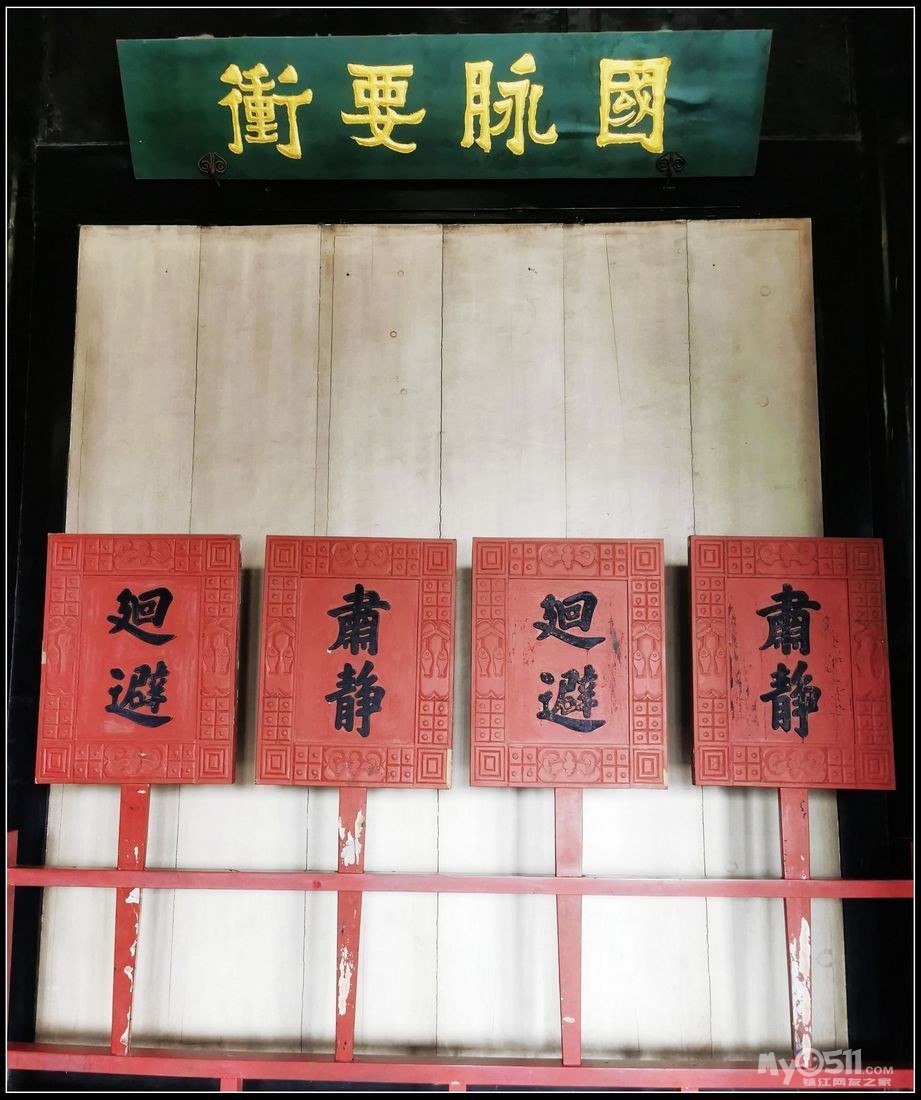 國脉要衝
肅静
迴避
肅静
迴避
My0511.COM
镇江网友之家